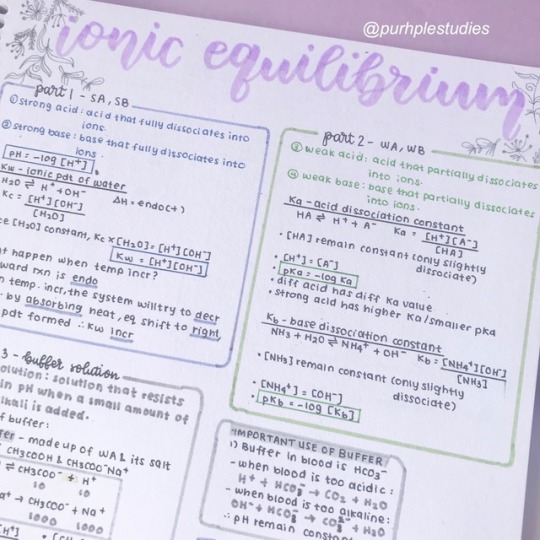 @purhplestudies
ionic equilibrium
part 1 - SA, SB
① strong acid: acid that fully dissociates into
ions.
② strong base: base that fully dissociates into
ions.
pH = -log [H⁺]
Kw - ionic pdt of water
H₂O ⇌ H⁺ + OH⁻ ΔH = endo(+)
Kc = [H⁺][OH⁻]
[H₂O]
[H₂O] constant, Kc × [H₂O] = [H⁺][OH⁻]
Kw = [H⁺][OH⁻]
happen when temp incr?
rxn is endo
temp. incr, the system will try to decr
by absorbing heat, eq. shift to right
pdt formed ∴ Kw incr
part 2 - WA, WB
③ weak acid: acid that partially dissociates
into ions.
④ weak base: base that partially dissociates
into ions.
Ka - acid dissociation constant
HA ⇌ H⁺ + A⁻ Ka = [H⁺][A⁻]
[HA]
• [HA] remain constant (only slightly
dissociate)
• [H⁺] = [A⁻]
• pKa = -log Ka
• diff acid has diff Ka value
• strong acid has higher Ka/smaller pka
Kb - base dissociation constant
NH₃ + H₂O ⇌ NH₄⁺ + OH⁻ Kb = [NH₄⁺][OH⁻]
[NH₃]
• [NH₃] remain constant (only slightly
dissociate)
• [NH₄⁺] = [OH⁻]
• pKb = -log [Kb]
3 - buffer solution
: solution that resists
in pH when a small amount of
is added.
buffer:
- made up of WA & its salt
CH₃COOH & CH₃COO⁻Na⁺
⇌ CH₃COO⁻ + H⁺
10 10
→ CH₃COO⁻ + Na⁺
1000 1000
IMPORTANT USE OF BUFFER
1) Buffer in blood is HCO₃⁻
- when blood is too acidic:
H⁺ + HCO₃⁻ → CO₂ + H₂O
- when blood is too alkaline:
OH⁻ + HCO₃⁻ → CO₃²⁻ + H₂O
∴ pH remain